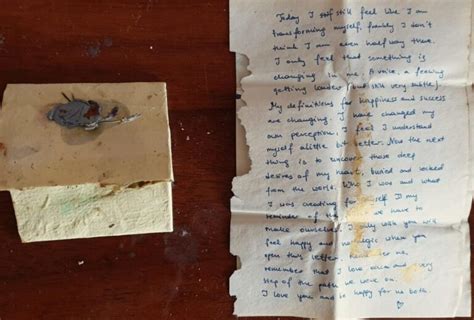 Today I still feel like I am
transforming myself, frankly I don't
think I am even half way there.
I only feel that something is
changing in me. A voice, a feeling
getting louder (but still very subtle).
My definitions for happiness and success
are changing. I have changed my
own perception. I feel I understand
myself a little bit better. Now the next
thing is to uncover those deep
desires of my heart, buried and locked
from the world. Who I was and what
I was creating for myself
reminder of the we have to
make ourselves. I only wish you will
feel happy and when you
open this letter. me,
remember that I love you and every
step of the path we were on.
I love you and be happy for us both.